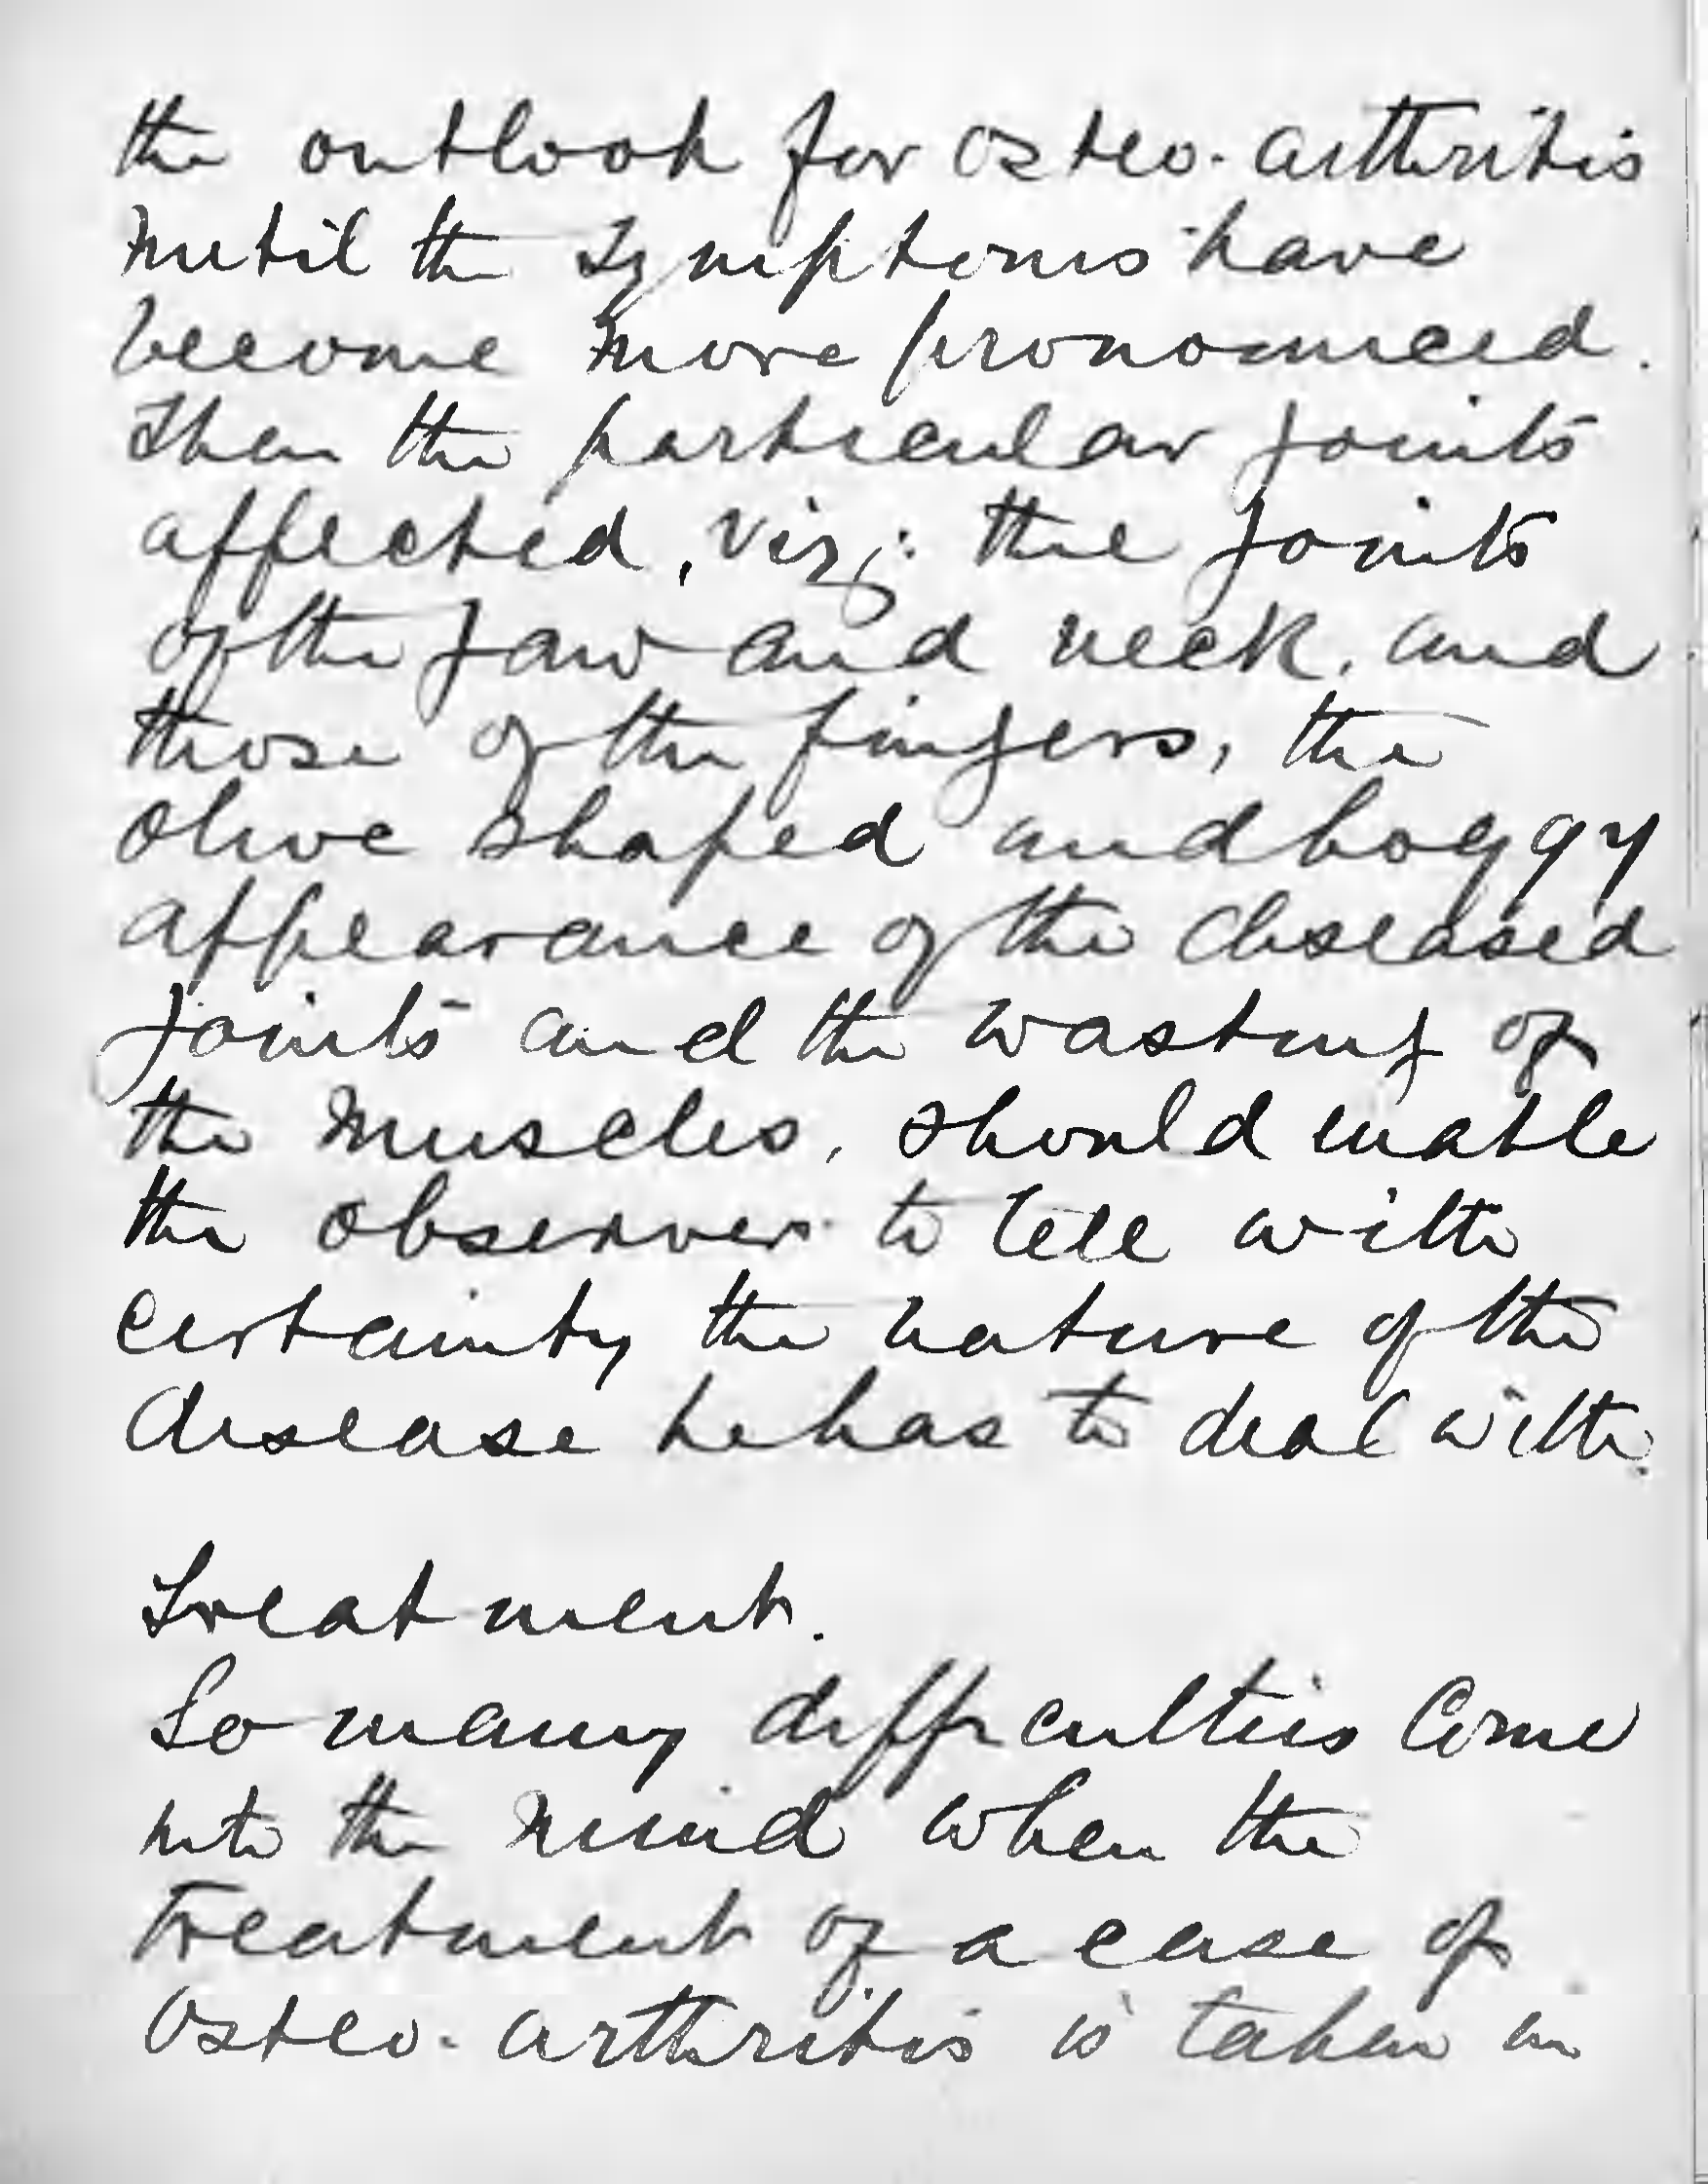 the outlook for osteo-arthritis
until the symptoms have
become more pronounced.
Then the particular joints
affected, viz;. the joints
of the jaw and neck, and
those of the fingers, the
olive shaped and boggy
appearance of the diseased
joints and the wasting of
the muscles, should enable
the observer to tell with
certainty the nature of the
disease he has to deal with.
Treatment.
So many difficulties come
into the mind when the
treatment of a case of
Osteo-arthritis is taken in